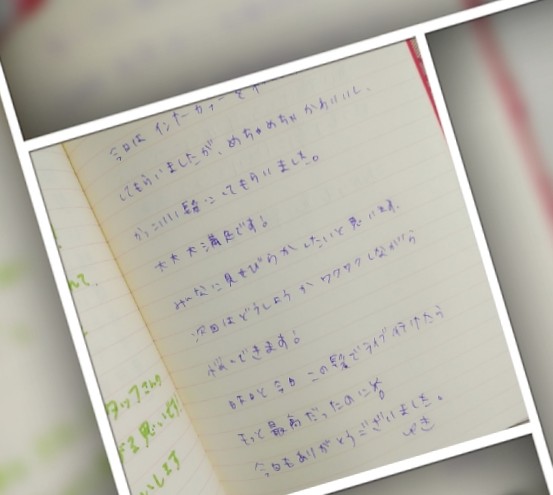 今日は インナーカラーを
してもらいましたが、めちゃめちゃ かわいいし、
かっこいい髪にしてもらいました。
大大大満足です!
みーなに見せびらかしたいと思います。
次回はどうしようか ワクワクしながら
がーできます!
昨日と今日 この髪でライブ行けたら
もっと最高だったのにな
今日もありがとうございました。
ゆき
んて、
タッフさん
思い
いします